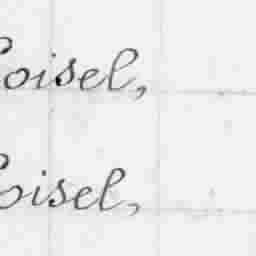 Loisel,
Loisel,